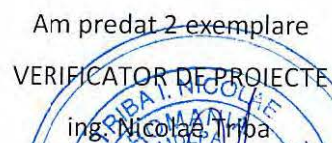 Am predat 2 exemplare
VERIFICATOR DE PROIECTE
ing. Nicolae Triba
TRIBA I. NICOLAE
ROMANIA